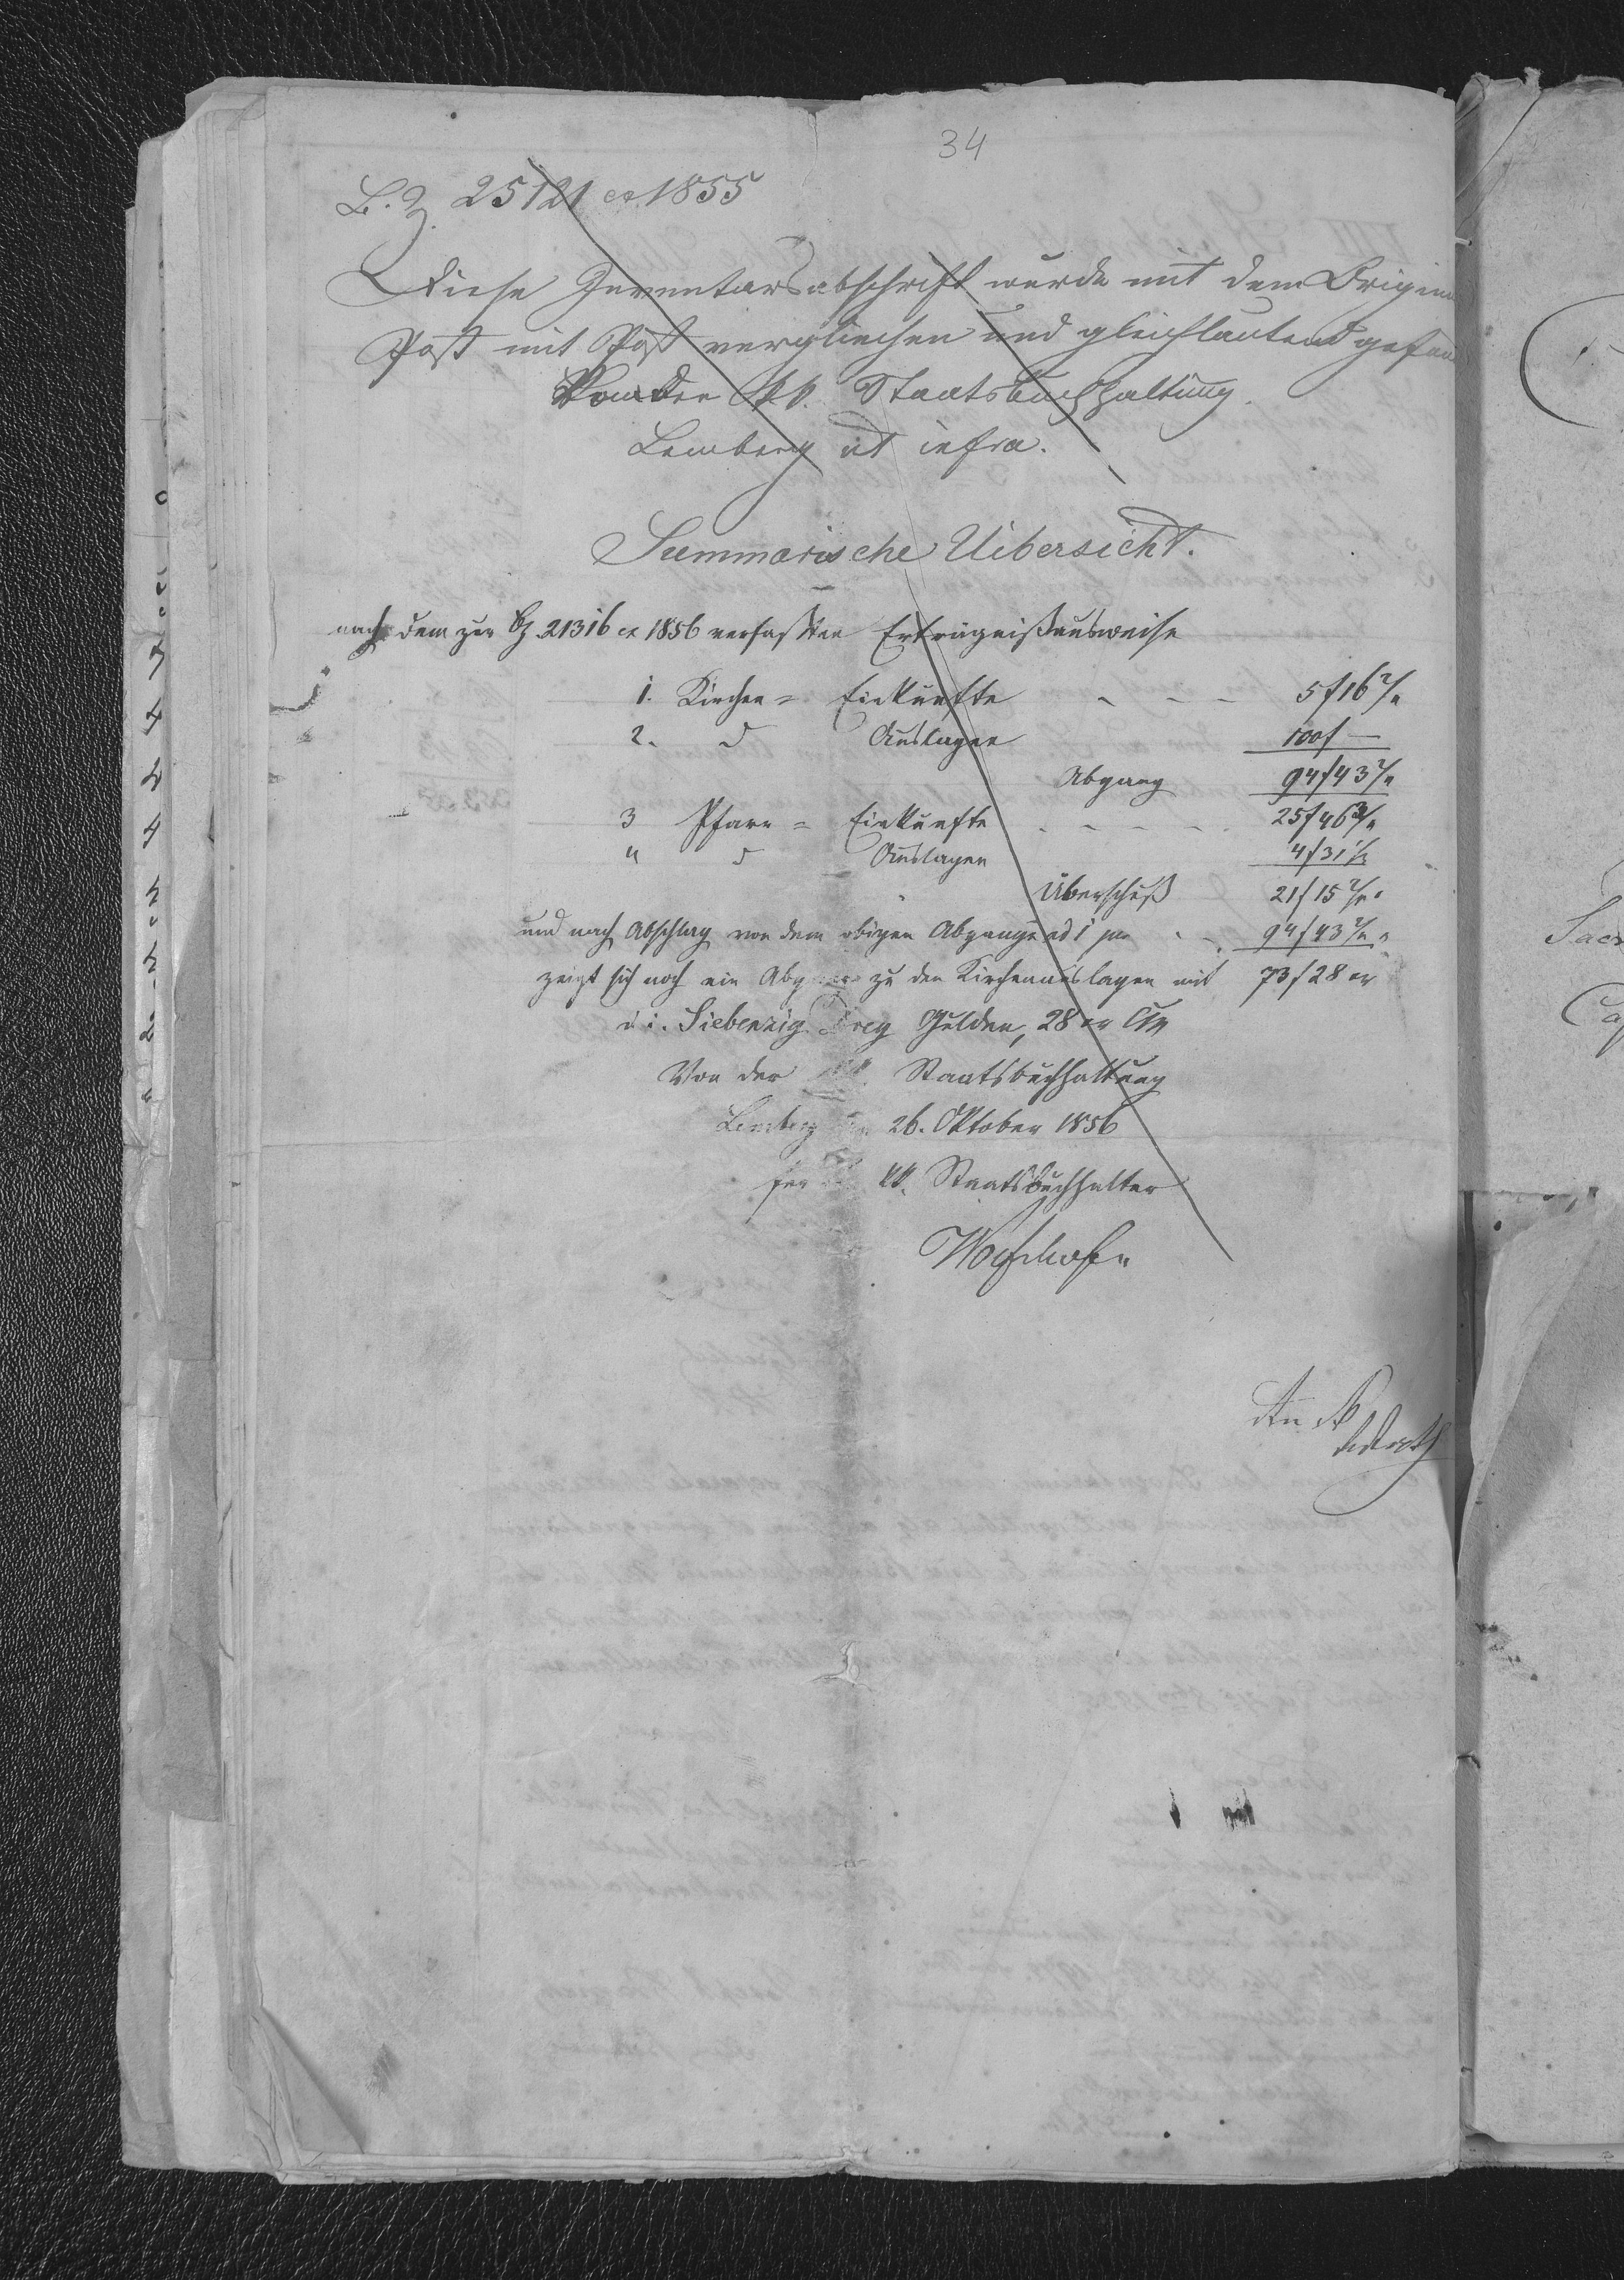 34
B. Z. 25121 ex 1855
Diese Inventarsabschrift wurde mit dem Origin
Post mit Post verglichen und gleichlautend gefun
Von der kk. Staatsbuchhaltung.
Lemberg ut infra.
Summarische Uibersicht.
nach dem zur Bz. 21316 ex 1856 verfaßten Erträgnißausweise
1. Kirchen = Einkünfte - - - 5 f 16 2/4
2. d Auslagen 100 f —
Abgang 94 f 43 2/4
3 Pfarr = Einkünfte - - - - 25 f 46 3/4
4 d Auslagen 4 f 31 1/4
Überschuß 21 f 15 2/4
und nach Abschlag von dem obigen Abgange ad 1 pr 94 f 43 2/4
zeigt sich noch ein Abgang zu den Kirchenauslagen mit 73 f 28 xr
d. i. Siebenzig Drey Gulden, 28 xr CM
Von der kk. Staatsbuchhaltung
Lemberg den 26. Oktober 1856
kk. Staatsbuchhalter